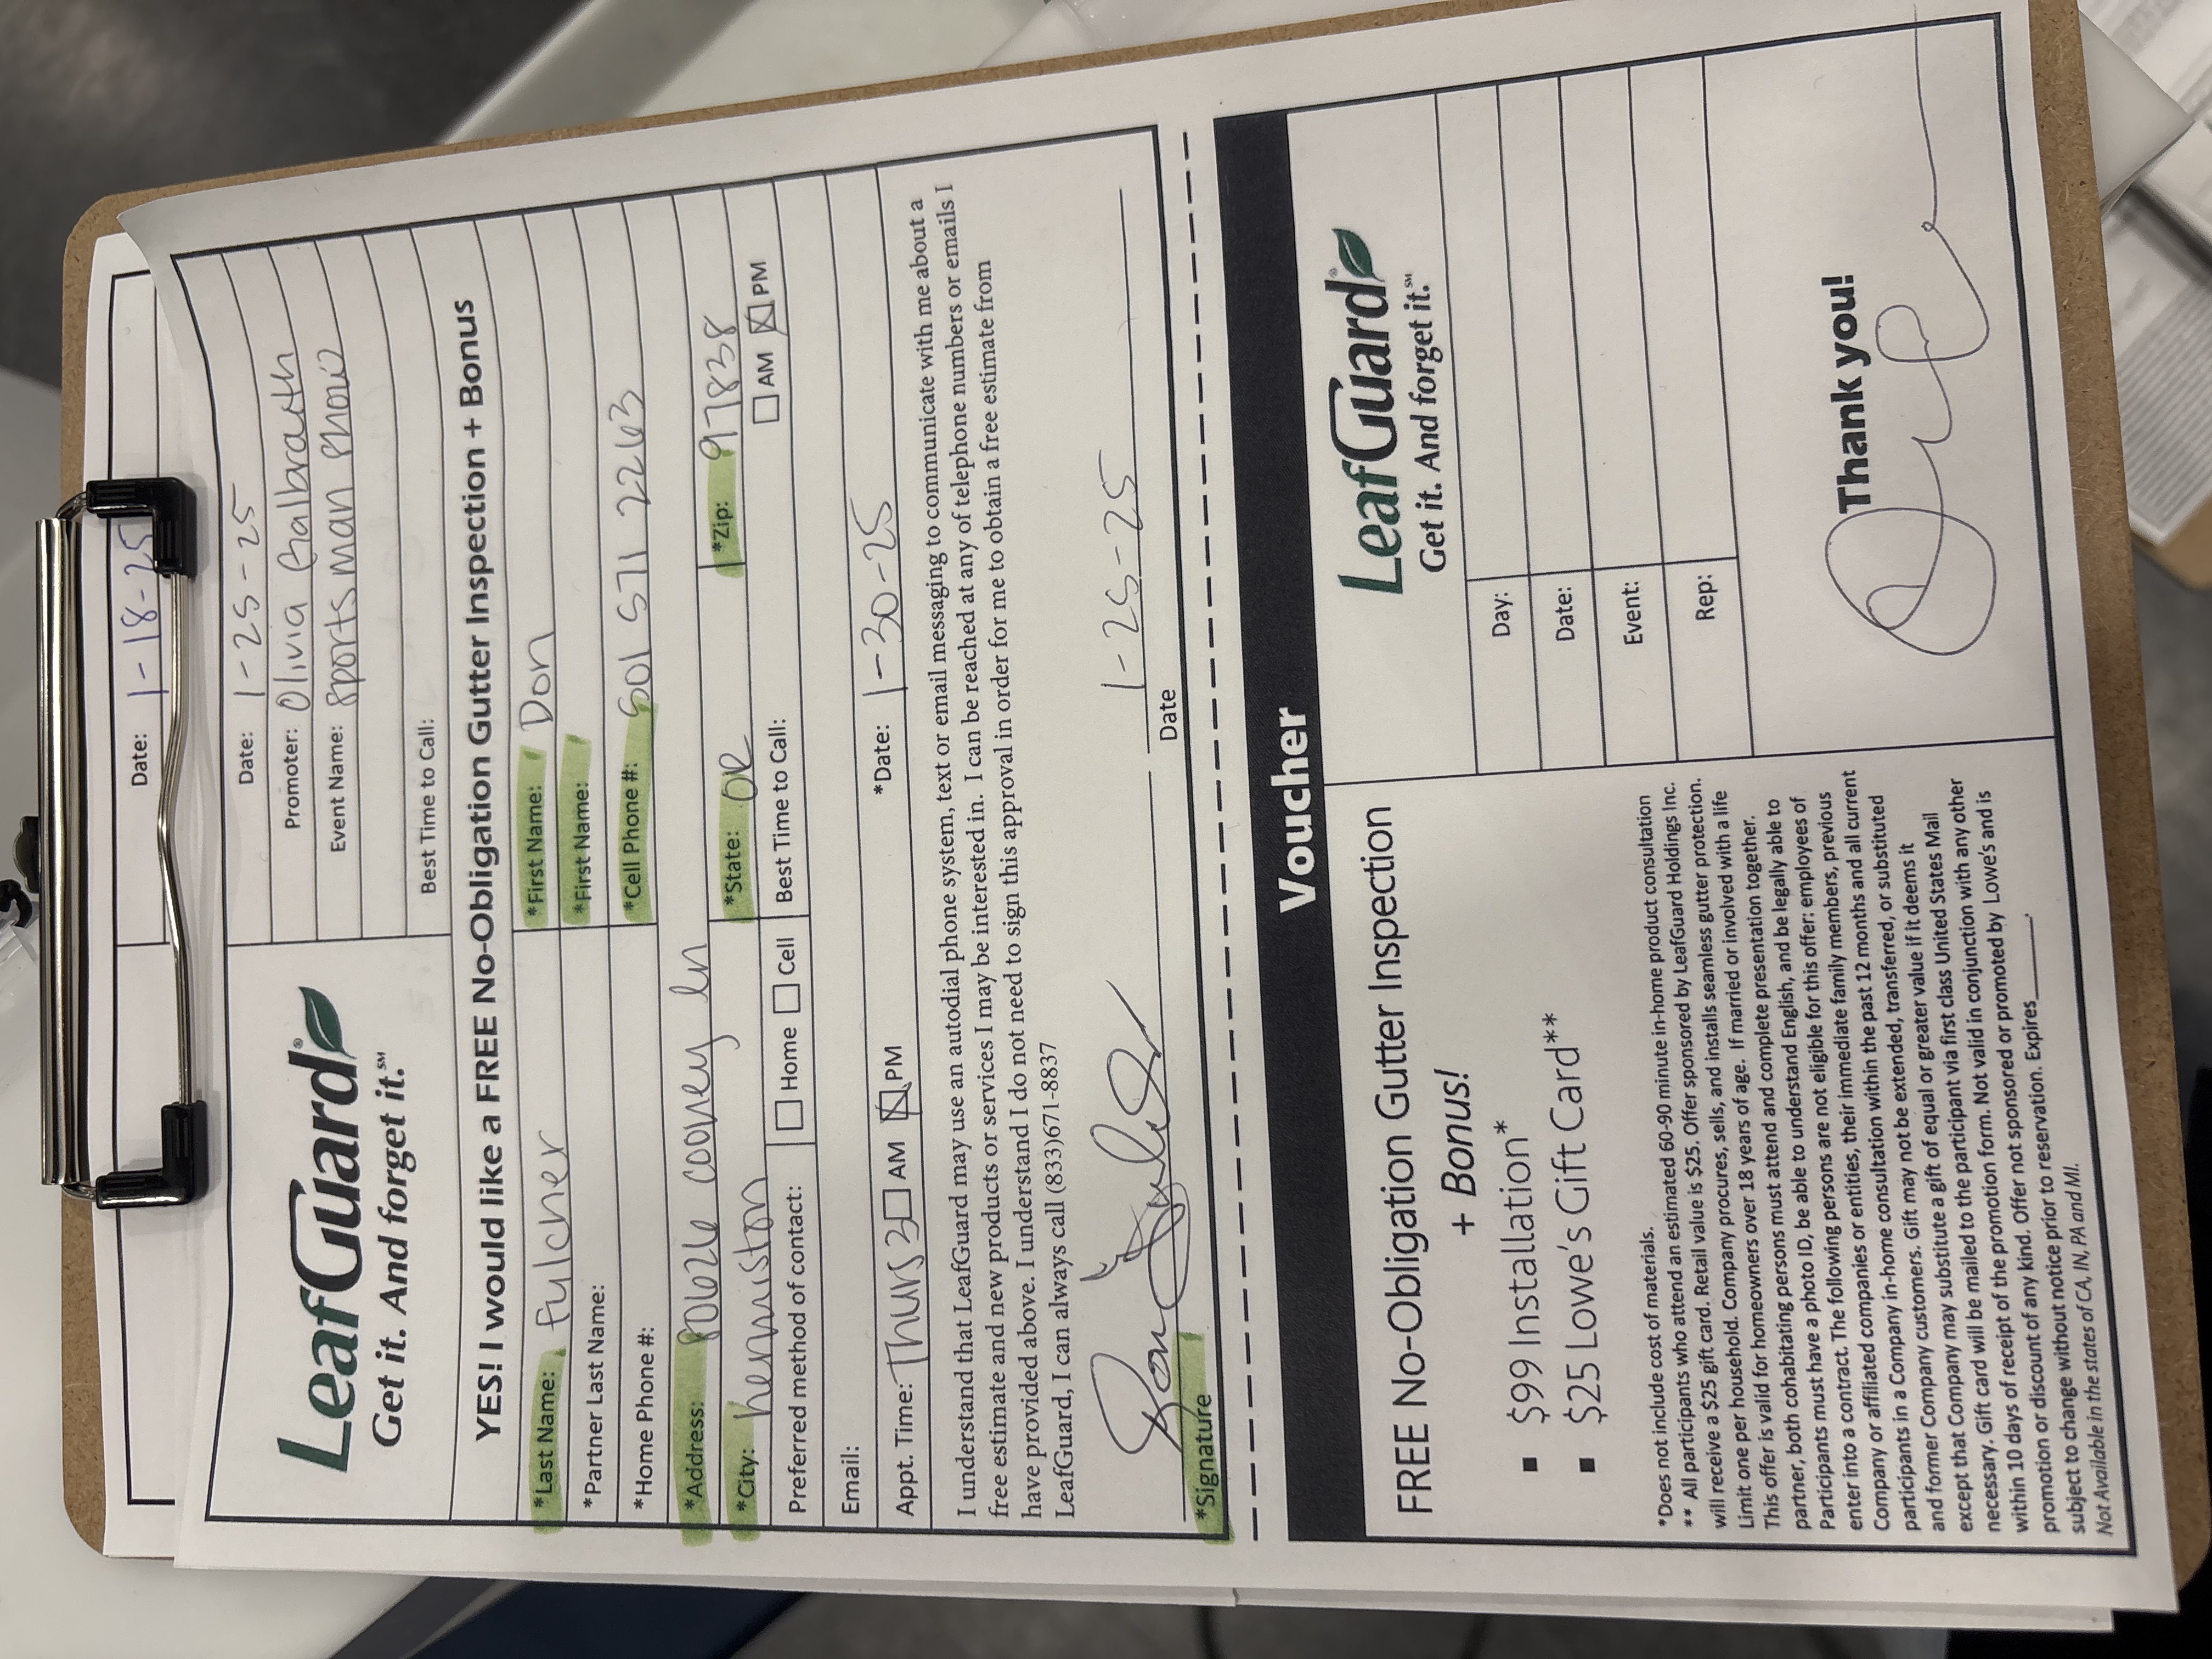 Date: 1-18-25
LeafGuard®
Get it. And forget it.℠
Date: 1-25-25
Promoter: Olivia Galbraith
Event Name: Sportsman Show
Best Time to Call:
YES! I would like a FREE No-Obligation Gutter Inspection + Bonus
*Last Name: Fulcher *First Name: Don
*Partner Last Name: *First Name:
*Home Phone #: *Cell Phone #: 501 571 2263
*Address: 80626 cooney ln
*City: hermiston *State: OR *Zip: 97838
Preferred method of contact: Home Cell Best Time to Call: AM PM
Email:
Appt. Time: Thurs 3 AM PM *Date: 1-30-25
I understand that LeafGuard may use an autodial phone system, text or email messaging to communicate with me about a
free estimate and new products or services I may be interested in. I can be reached at any of telephone numbers or emails I
have provided above. I understand I do not need to sign this approval in order for me to obtain a free estimate from
LeafGuard, I can always call (833)671-8837
Don Fulcher 1-25-25
*Signature Date
Voucher
FREE No-Obligation Gutter Inspection
+ Bonus!
▪ $99 Installation*
▪ $25 Lowe's Gift Card**
*Does not include cost of materials.
** All participants who attend an estimated 60-90 minute in-home product consultation
will receive a $25 gift card. Retail value is $25. Offer sponsored by LeafGuard Holdings Inc.
Limit one per household. Company procures, sells, and installs seamless gutter protection.
This offer is valid for homeowners over 18 years of age. If married or involved with a life
partner, both cohabitating persons must attend and complete presentation together.
Participants must have a photo ID, be able to understand English, and be legally able to
enter into a contract. The following persons are not eligible for this offer: employees of
Company or affiliated companies or entities, their immediate family members, previous
participants in a Company in-home consultation within the past 12 months and all current
and former Company customers. Gift may not be extended, transferred, or substituted
except that Company may substitute a gift of equal or greater value if it deems it
necessary. Gift card will be mailed to the participant via first class United States Mail
within 10 days of receipt of the promotion form. Not valid in conjunction with any other
promotion or discount of any kind. Offer not sponsored or promoted by Lowe's and is
subject to change without notice prior to reservation. Expires________.
Not Available in the states of CA, IN, PA and MI.
LeafGuard®
Get it. And forget it.℠
Day:
Date:
Event:
Rep:
Thank you!